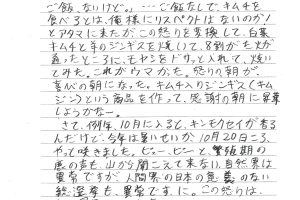 ご飯、ないけど。…ご飯なしで、キムチを
食べるとは、俺様にリスペクトはないのか!
とアタマに来たが、この怒りを変換して、白菜
キムチと羊のジンギスを焼いて、8割がた火が
通ったところに、モヤシをドサッと入れて、焼い
てみた。これがウマかった。怒りの朝が、
喜びの朝になった。キムチ入りジンギス(キム
ジン)という商品を作って、感謝の朝に昇華
しようかなー。
さて、例年、10月に入ると、キンモクセイが香る
んだけど、今年は暑いせいか、10月20日ころ、
やっと咲きました。ピュー、ピューと、繁殖期の
鹿の声も、山から聞こえて来ない。自然界は
異常ですが、人間界の日本の意義のない
総選挙も、異常です、に。この怒りは、